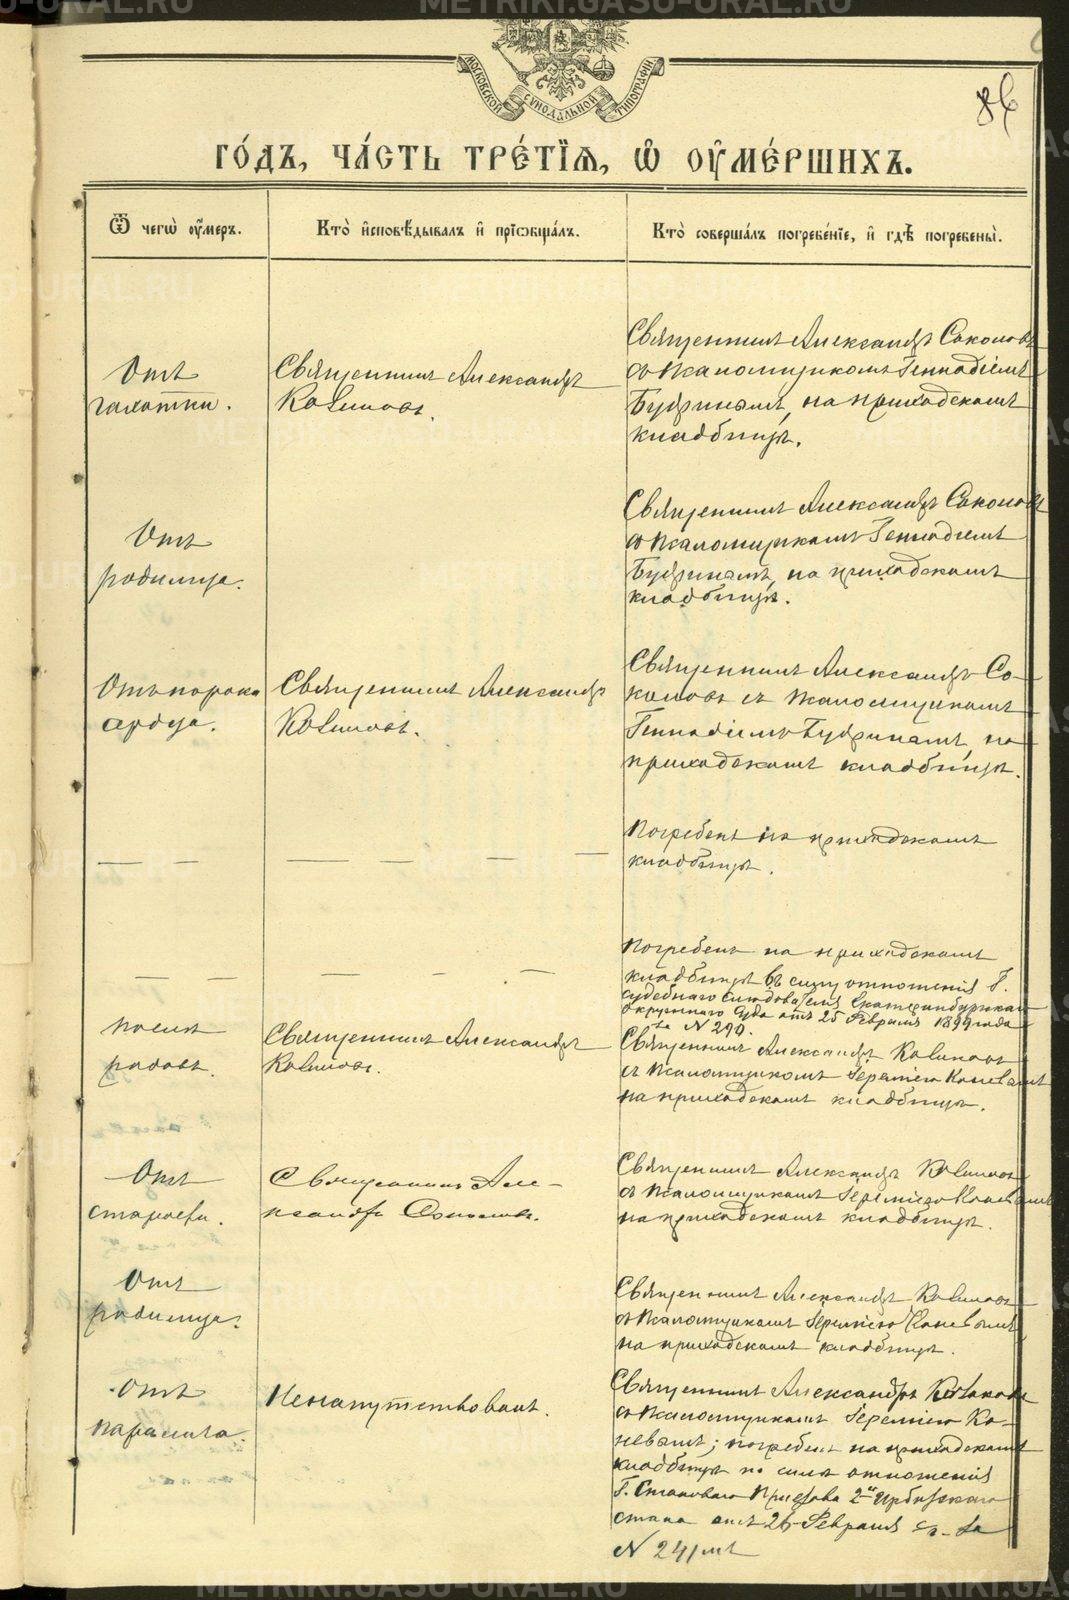 МОСКОВСКОЙ СѴНОДАЛЬНОЙ ТИПОГРАФІИ
86
ГО́ДЪ, ЧА́СТЬ ТРЕ́ТЇѦ, Ѡ҆ ОУ҆МЕ́РШИХЪ.
Ѿ чегѡ̀ оу҆́меръ.
Кто̀ и҆сповѣ́дывалъ и҆ прїѡбща́лъ.
Кто̀ соверша́лъ погребе́нїе, и҆ гдѣ̀ погребены̀.
Отъ
чахотки.
Священникъ Александръ
Священникъ Александръ Соколовъ
съ псаломщикомъ Геннадіемъ
на приходскомъ
кладбищѣ.
Отъ
родимца.
Священникъ Александръ Соколовъ
съ псаломщикомъ Геннадіемъ
на приходскомъ
кладбищѣ.
Отъ порока
сердца.
Священникъ Александръ
Священникъ Александръ Со-
коловъ съ псаломщикомъ
Геннадіемъ на
приходскомъ кладбищѣ.
Погребенъ на приходскомъ
кладбищѣ.
Погребенъ на приходскомъ
кладбищѣ въ силу отношенія Г.
Судебнаго Слѣдователя Екатеринбургскаго
Окружнаго Суда отъ 25 Февраля 1899 года
за N 290.
Послѣ
родовъ.
Священникъ Александръ
Священникъ Александръ
съ псаломщикомъ Іереміею Коневымъ
на приходскомъ кладбищѣ.
Отъ
старости.
Священникъ Але-
ксандръ Соколовъ.
Священникъ Александръ
съ псаломщикомъ Іереміею Коневымъ
на приходскомъ кладбищѣ.
Отъ
родимца.
Священникъ Александръ
съ псаломщикомъ Іереміею Коневымъ
на приходскомъ кладбищѣ.
Отъ
паралича.
Ненапутствованъ.
Священникъ Александръ
съ псаломщикомъ Іереміею Ко-
невымъ; погребенъ на приходскомъ
кладбищѣ по силѣ отношенія
Г. Становаго Пристава 2го Ирбитскаго
стана отъ 26 Февраля за
N 241
METRIKI.GASO-URAL.RU